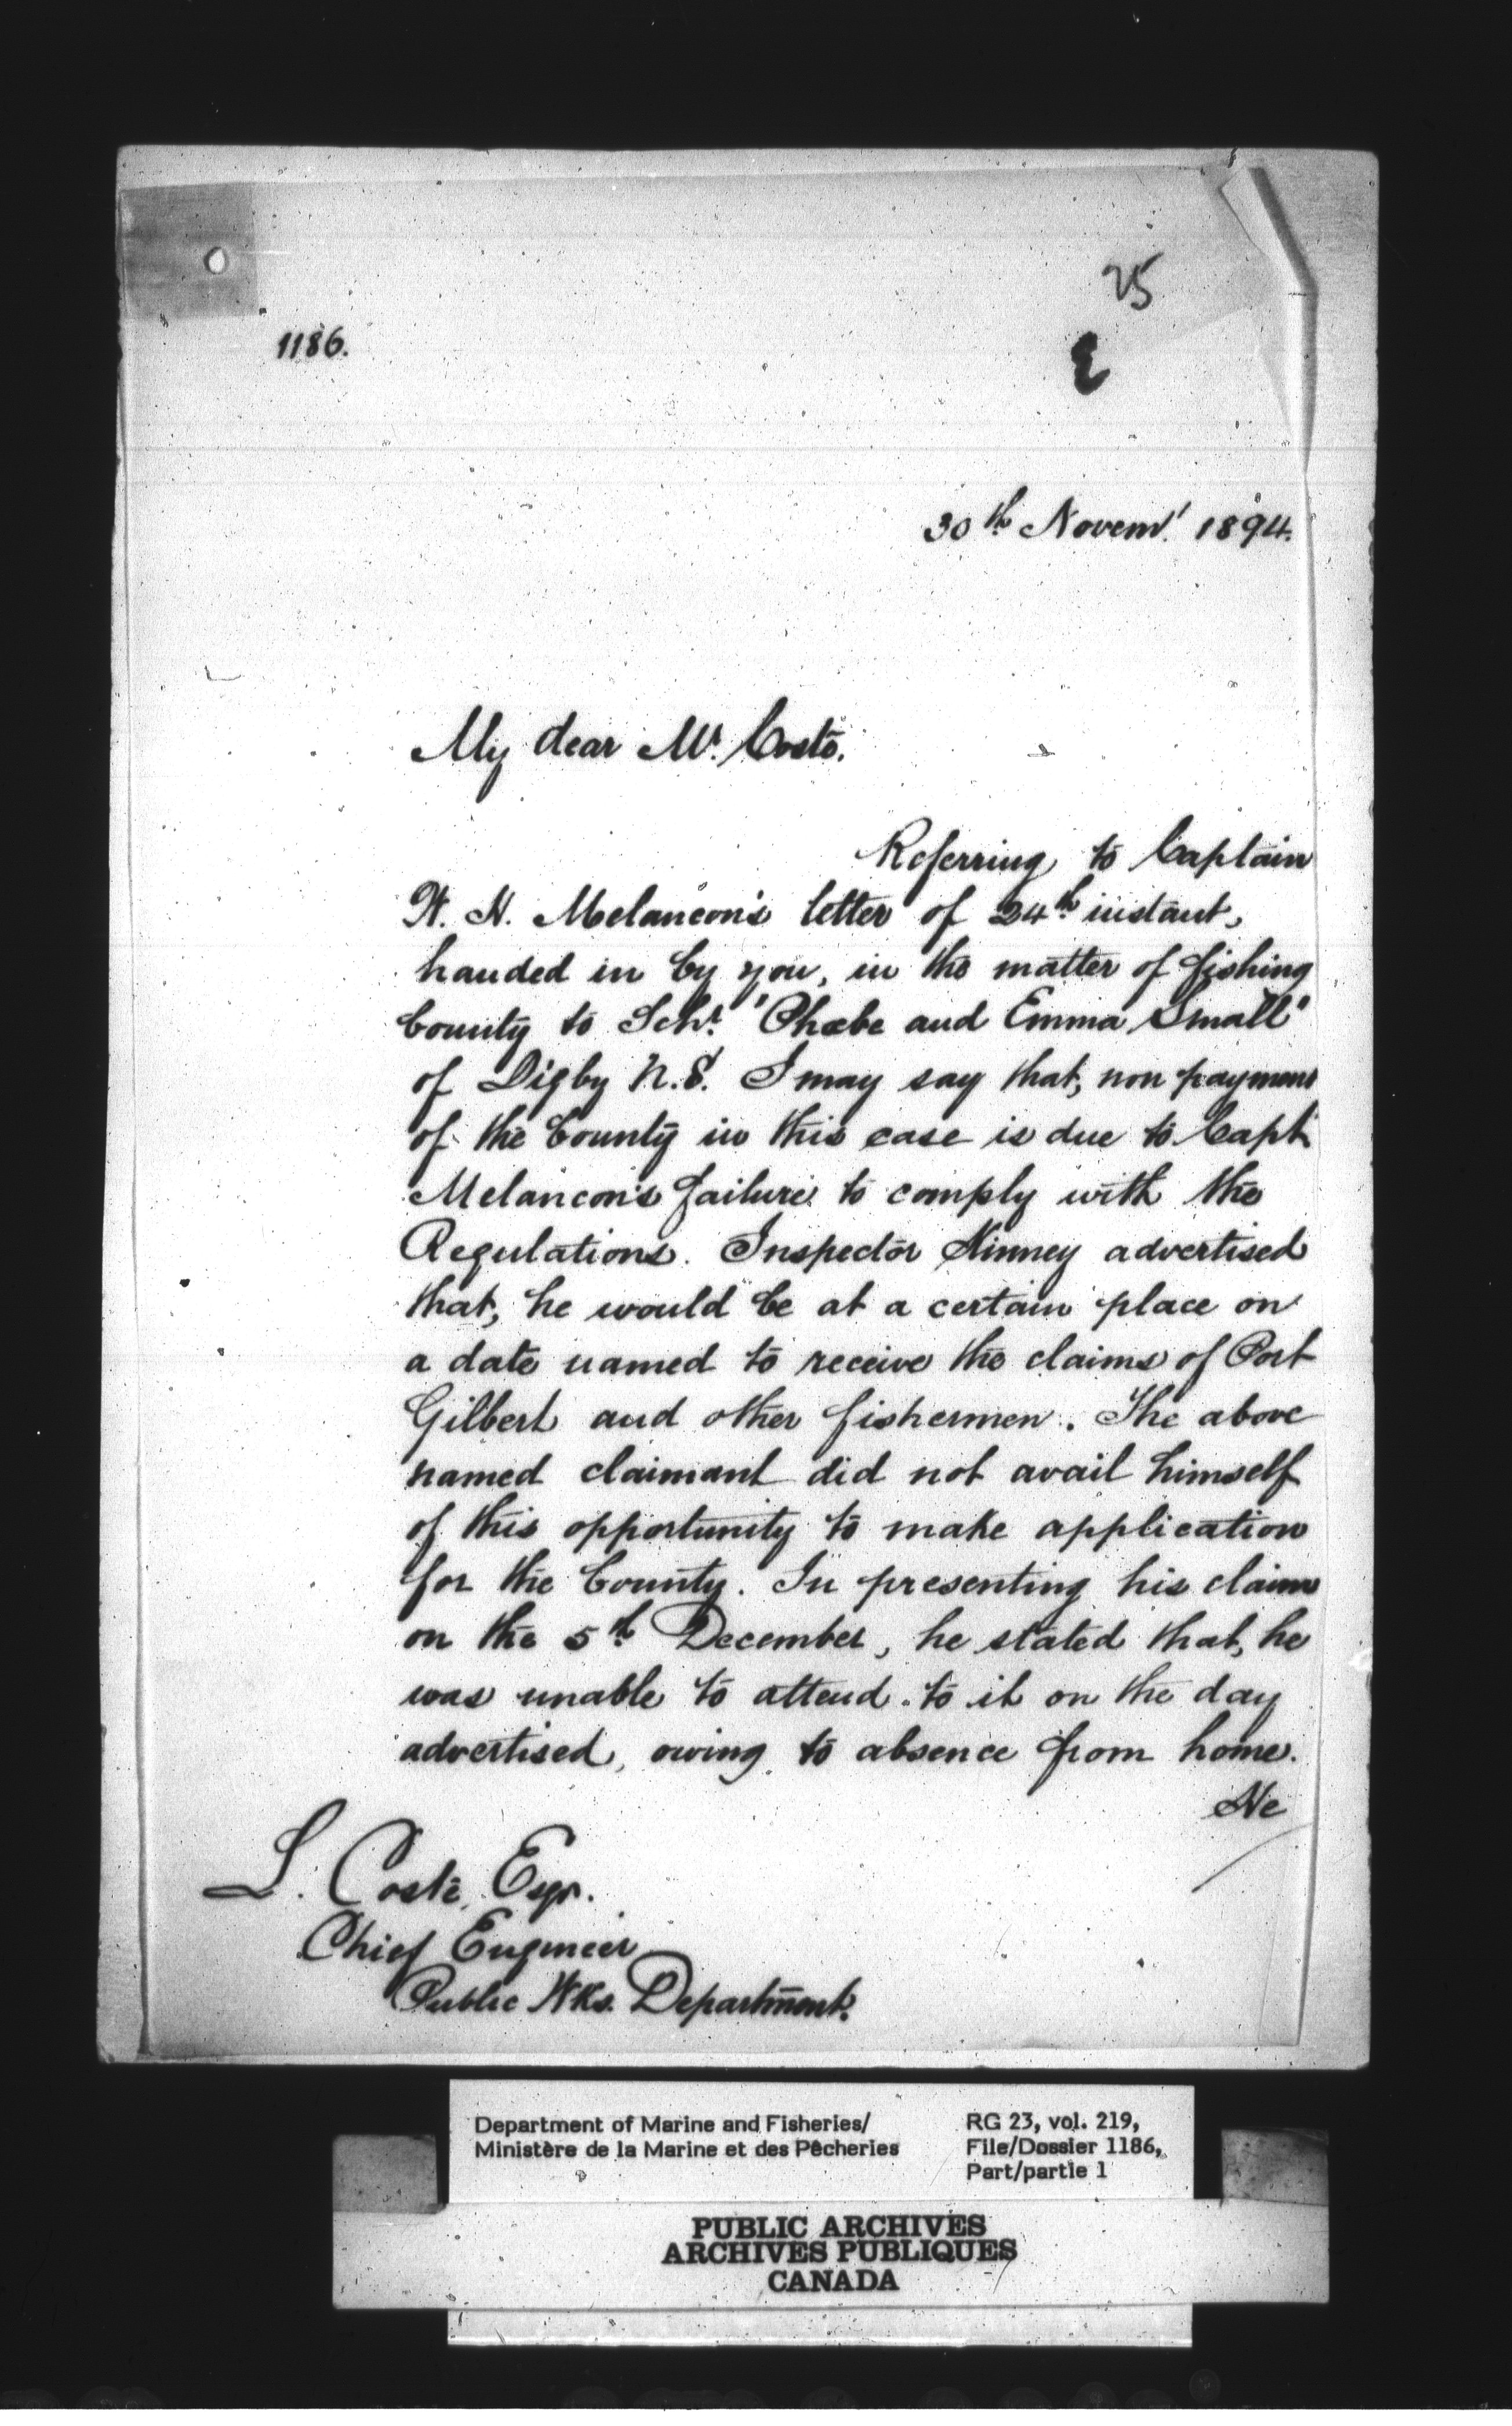 25
1186.
E
30th Novem' 1894.
My dear Mr. Coste.
Referring to Captain
W. H. Melancon's letter of 24th instant,
handed in by you, in the matter of fishing
bounty to Schr. "Phœbe and Emma Small"
of Digby N.S. I may say that, non payment
of the bounty in this case is due to Capt
Melancon's failure to comply with the
Regulations. Inspector Kinney advertised
that, he would be at a certain place on
a date named to receive the claims of Port
Gilbert and other fishermen. The above
named claimant did not avail himself
of this opportunity to make application
for the bounty. In presenting his claim
on the 5th December, he stated that, he
was unable to attend to it on the day
advertised, owing to absence from home.
He
L. Coste, Esqr.
Chief Engineer
Public Wks. Department.
Department of Marine and Fisheries/
Ministère de la Marine et des Pêcheries
RG 23, vol. 219,
File/Dossier 1186,
Part/partie 1
PUBLIC ARCHIVES
ARCHIVES PUBLIQUES
CANADA